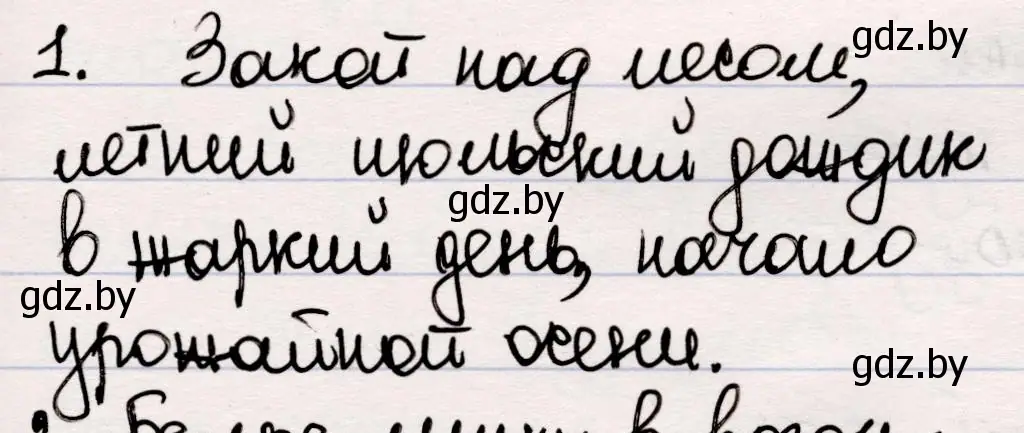 1. Закат над лесом,
летний июльский дождик
в жаркий день, начало
урожайной осени.
gdz.by
gdz.by
gdz.by
gdz.by